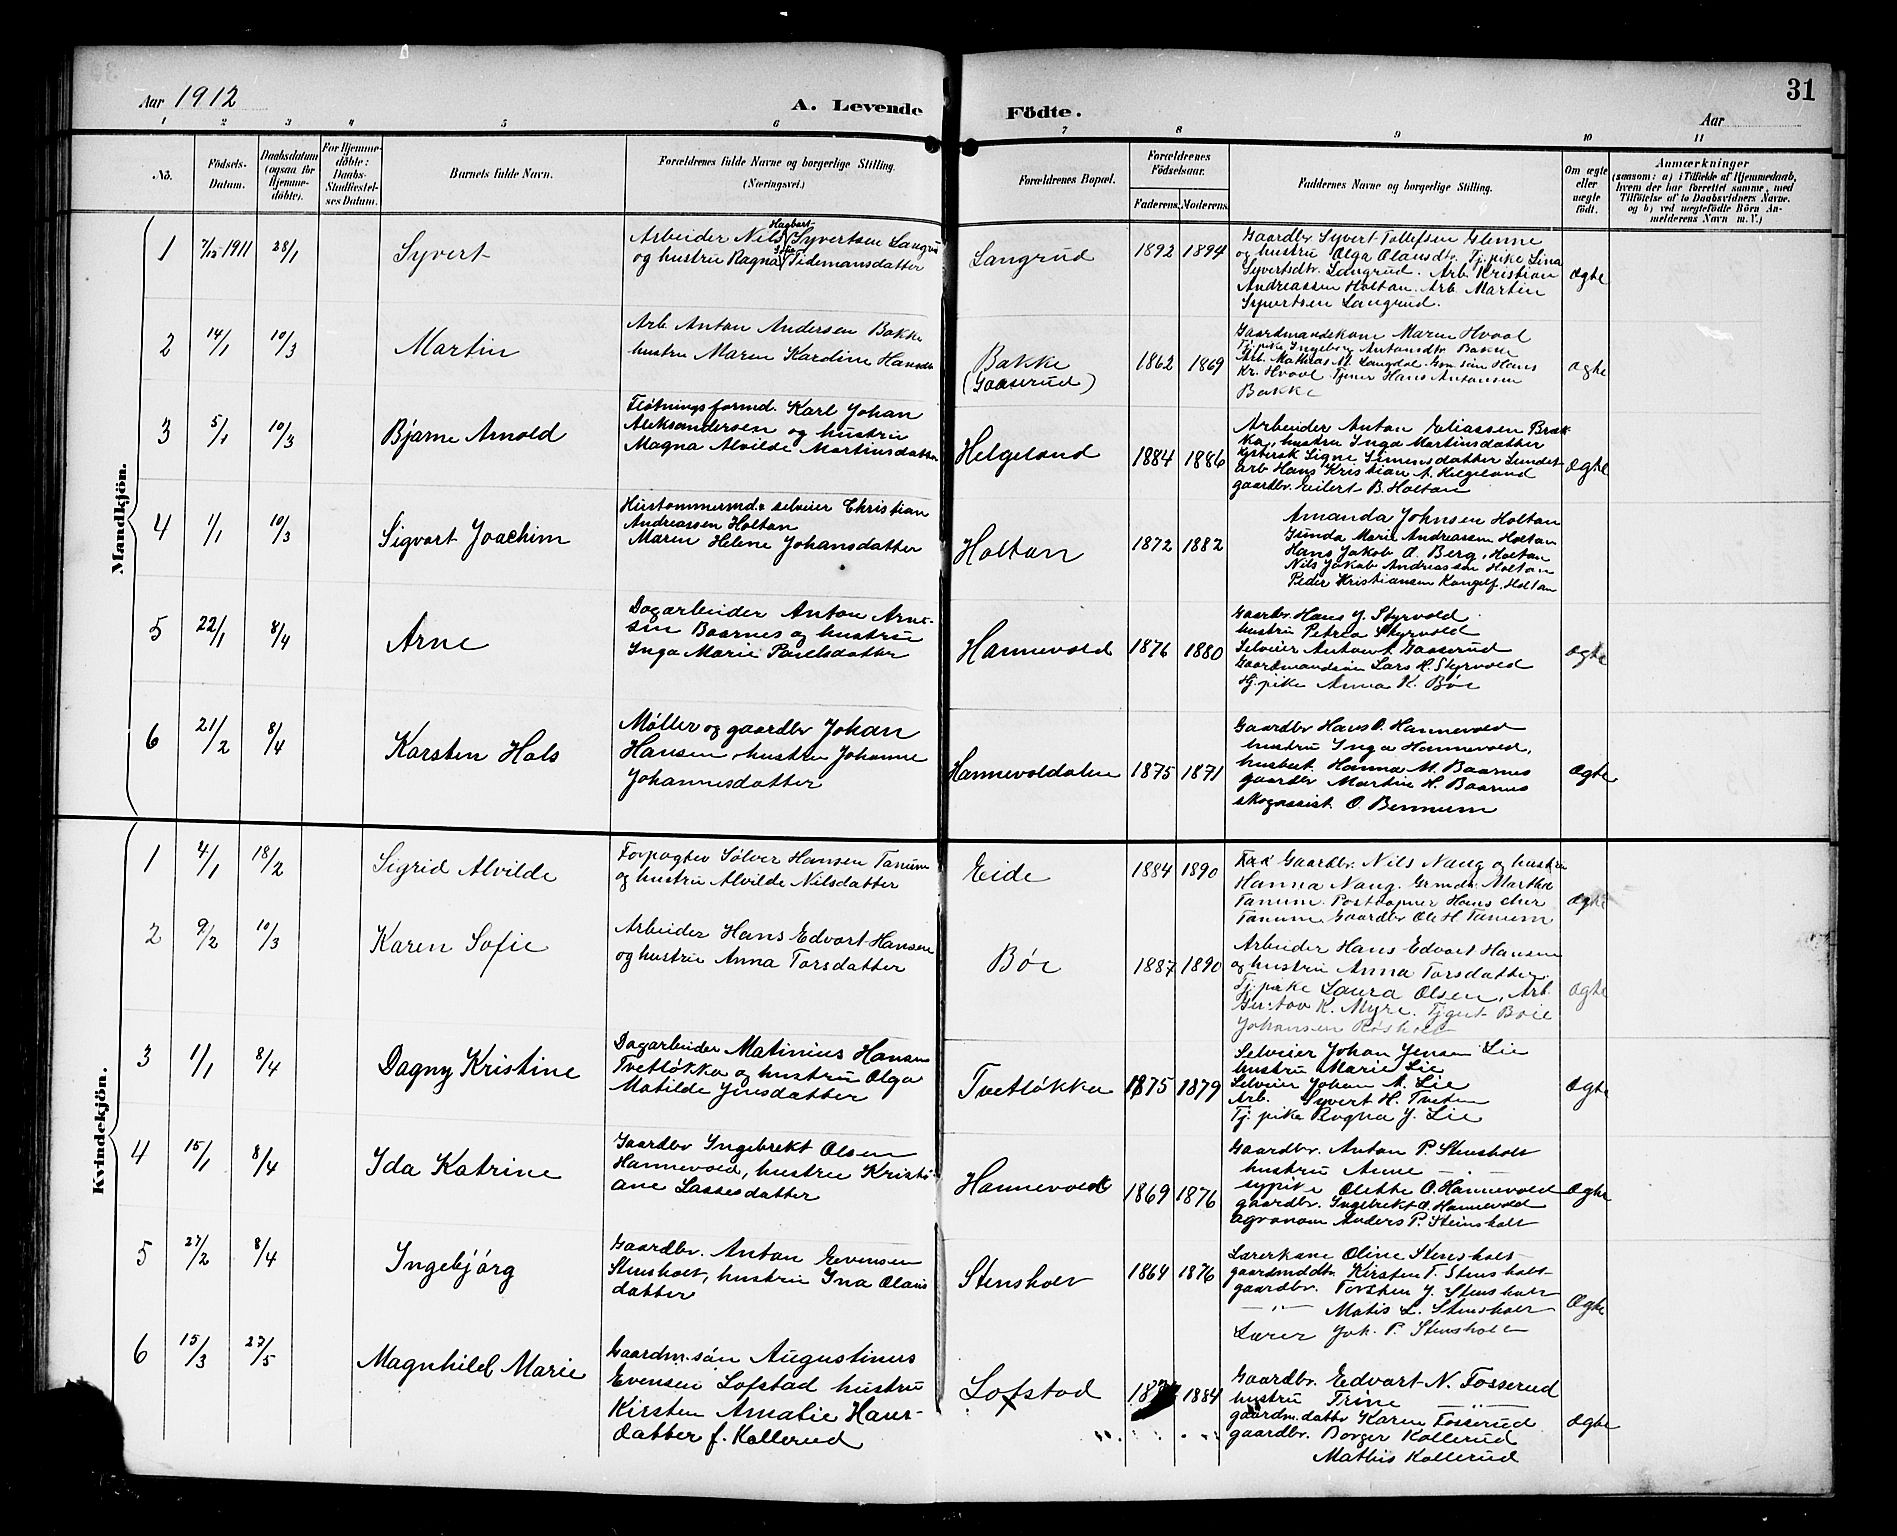 31
Aar 1912
A. Levende Födte.
Aar
1 2 3 4 5 6 7 8 9 10 11
Nö.
Födsels-Datum.
Daabsdatum (ogsaa for Hjemmedöbte).
For Hjemmedöbte: Daabs-Stadfæstelses Datum.
Barnets fulde Navn.
Forældrenes fulde Navne og borgerlige Stilling.
(Næringsvei.)
Forældrenes Bopæl.
Forældrenes Födselsaar.
Faderens. Moderens.
Faddernes Navne og borgerlige Stilling.
Om ægte eller uægte födt.
Anmærkninger
(saasom: a) i Tilfælde af Hjemmedaab, hvem der har forrettet samme, med Tilföielse af to Daabsvidners Navne. og b) ved uægtefödte Börn Anmelderens Navn m. V.)
Mandkjön.
1 7/12 1911 28/1 Syvert
Arbeider Nils Hagbart Syvertsen Langrud
og hustru Ragna Sofie Tidemansdatter
Langrud 1892 1894
Gaardbr Syvert Tollefsen Glenne
og hustru Olga Olausdtr. Tj. pike Lina
Syvertsdtr. Langrud. Arb. Kristian
Andreassen Holtan. Arb. Martin
Syvertsen Langrud.
Ægte
2 14/1 10/3 Martin
Arb. Anton Andersen Bakke
hustru Maren Karoline Hansdtr
Bakke
(Gaaserud)
1862 1869
Gaardmandskone Maren Hvaal
Tj. pike Ingeborg Antonsdtr. Bakke
Arb. Mathias M. Langdal. Grm søn Hans
Kr. Hvaal. Tjener Hans Antonsen
Bakke
Ægte
3 5/1 10/3 Bjarne Arnold
Fløtningsformd. Karl Johan
Aleksandersen og hustru
Magna Alvilde Martinsdatter
Helgeland 1884 1886
Arbeider Anton Eliassen Bræk-
ke, hustru Inga Martinsdatter
Signe Simensdatter Sundet
arb Hans Kristian A. Helgeland
gaardbr. Eilert B. Holtan
Ægte
4 1/1 10/3 Sigvart Joachim
Hustømmermd. & selveier Christian
Andreassen Holtan
Maren Helene Johansdatter
Holtan 1872 1882
Amanda Johnsen Holtan
Gunda Marie Andreassen Holtan
Hans Jakob A. Berg, Holtan
Nils Jakob Andreassen Holtan
Peder Kristiansen Kongelf. Holtan
5 22/1 8/4 Arne
Dagarbeider Anton Arne-
sen Baarnes og hustru
Inga Marie Paulsdatter
Hannevold 1876 1880
Gaardbr. Hans J. Styrvold
hustru Petrea Styrvold
Selveier Anton A. Gaaserud
Gaardmandsøn Lars H. Styrvold
Tj. pike Anna K. Bøe
Ægte
6 21/2 8/4 Karsten Hals
Møller og gaardbr Johan
Hansen, hustru Johanne
Johannesdatter
Hannevolddalen 1875 1871
Gaardbr Hans O. Hannevold
hustru Inga Hannevold,
husbest. Hanna M. Baarnes
gaardbr Martin H. Baarnes
skogassist. O. Bennum
Ægte
Kvindekjön.
1 4/1 18/2 Sigrid Alvilde
Forpagter Sølver Hansen Tanum
og hustru Alvilde Nilsdatter
Eide 1884 1890
Gaardbr. Nils Naug og hustru
Hanna Naug. Grmdtr. Marthe
Tanum. Postaapner Hans Chr
Tanum Gaardbr Ole H. Tanum
Ægte
2 9/2 10/3 Karen Sofie
Arbeider Hans Edvart Hansen
og hustru Anna Torsdatter
Bøe 1887 1890
Arbeider Hans Edvart Hansen
og hustru Anna Torsdatter.
Tj. pike Laura Olsen, Arb.
Gustav K. Myre. Tjgut Boie
Johansen Røsholt
Ægte
3 1/1 8/4 Dagny Kristine
Dagarbeider Matinius Hansen
Tvetløkka og hustru Olga
Matilde Jensdatter
Tvetløkka 1875 1879
Selveier Johan Jensen Lie
hustru Marie Lie
Selveier Johan A. Lie
Arb. Syvert H. Tveten
Tj. pike Ragna J. Lie
Ægte
4 15/1 8/4 Ida Katrine
Gaardbr Ingebrekt Olsen
Hannevold, hustru Kristi-
ane Lassesdatter
Hannevold 1869 1876
Gaardbr. Anton P. Stensholt
hustru Anne —"—
sypike Olette O. Hannevold
gaardbr. Ingebrekt O. Hannevold
agronom Anders P. Stensholt
Ægte
5 27/2 8/4 Ingebjørg
Gaardbr. Anton Evensen
Stensholt, hustru Ina Olaus
datter
Stensholt 1864 1876
Lærerkone Oline Stensholt
gaardmddtr. Kirsten T. Stensholt
gaardbr. Torsten J. Stensholt
—"— Matis L. Stensholt
Lærer Joh. P. Stensholt
Ægte
6 15/3 27/5 Magnhild Marie
Gaardm. søn Augustinus
Evensen Lofstad hustru
Kirsten Amalie Hans-
datter f. Kallerud
Lofstad 1884
Gaardbr. Edvart N. Fosserud
hustru Trine —"—
gaardm. dattr Karen Fosserud
gaardbr. Borger Kollerud
Mathis Kollerud
Ægte